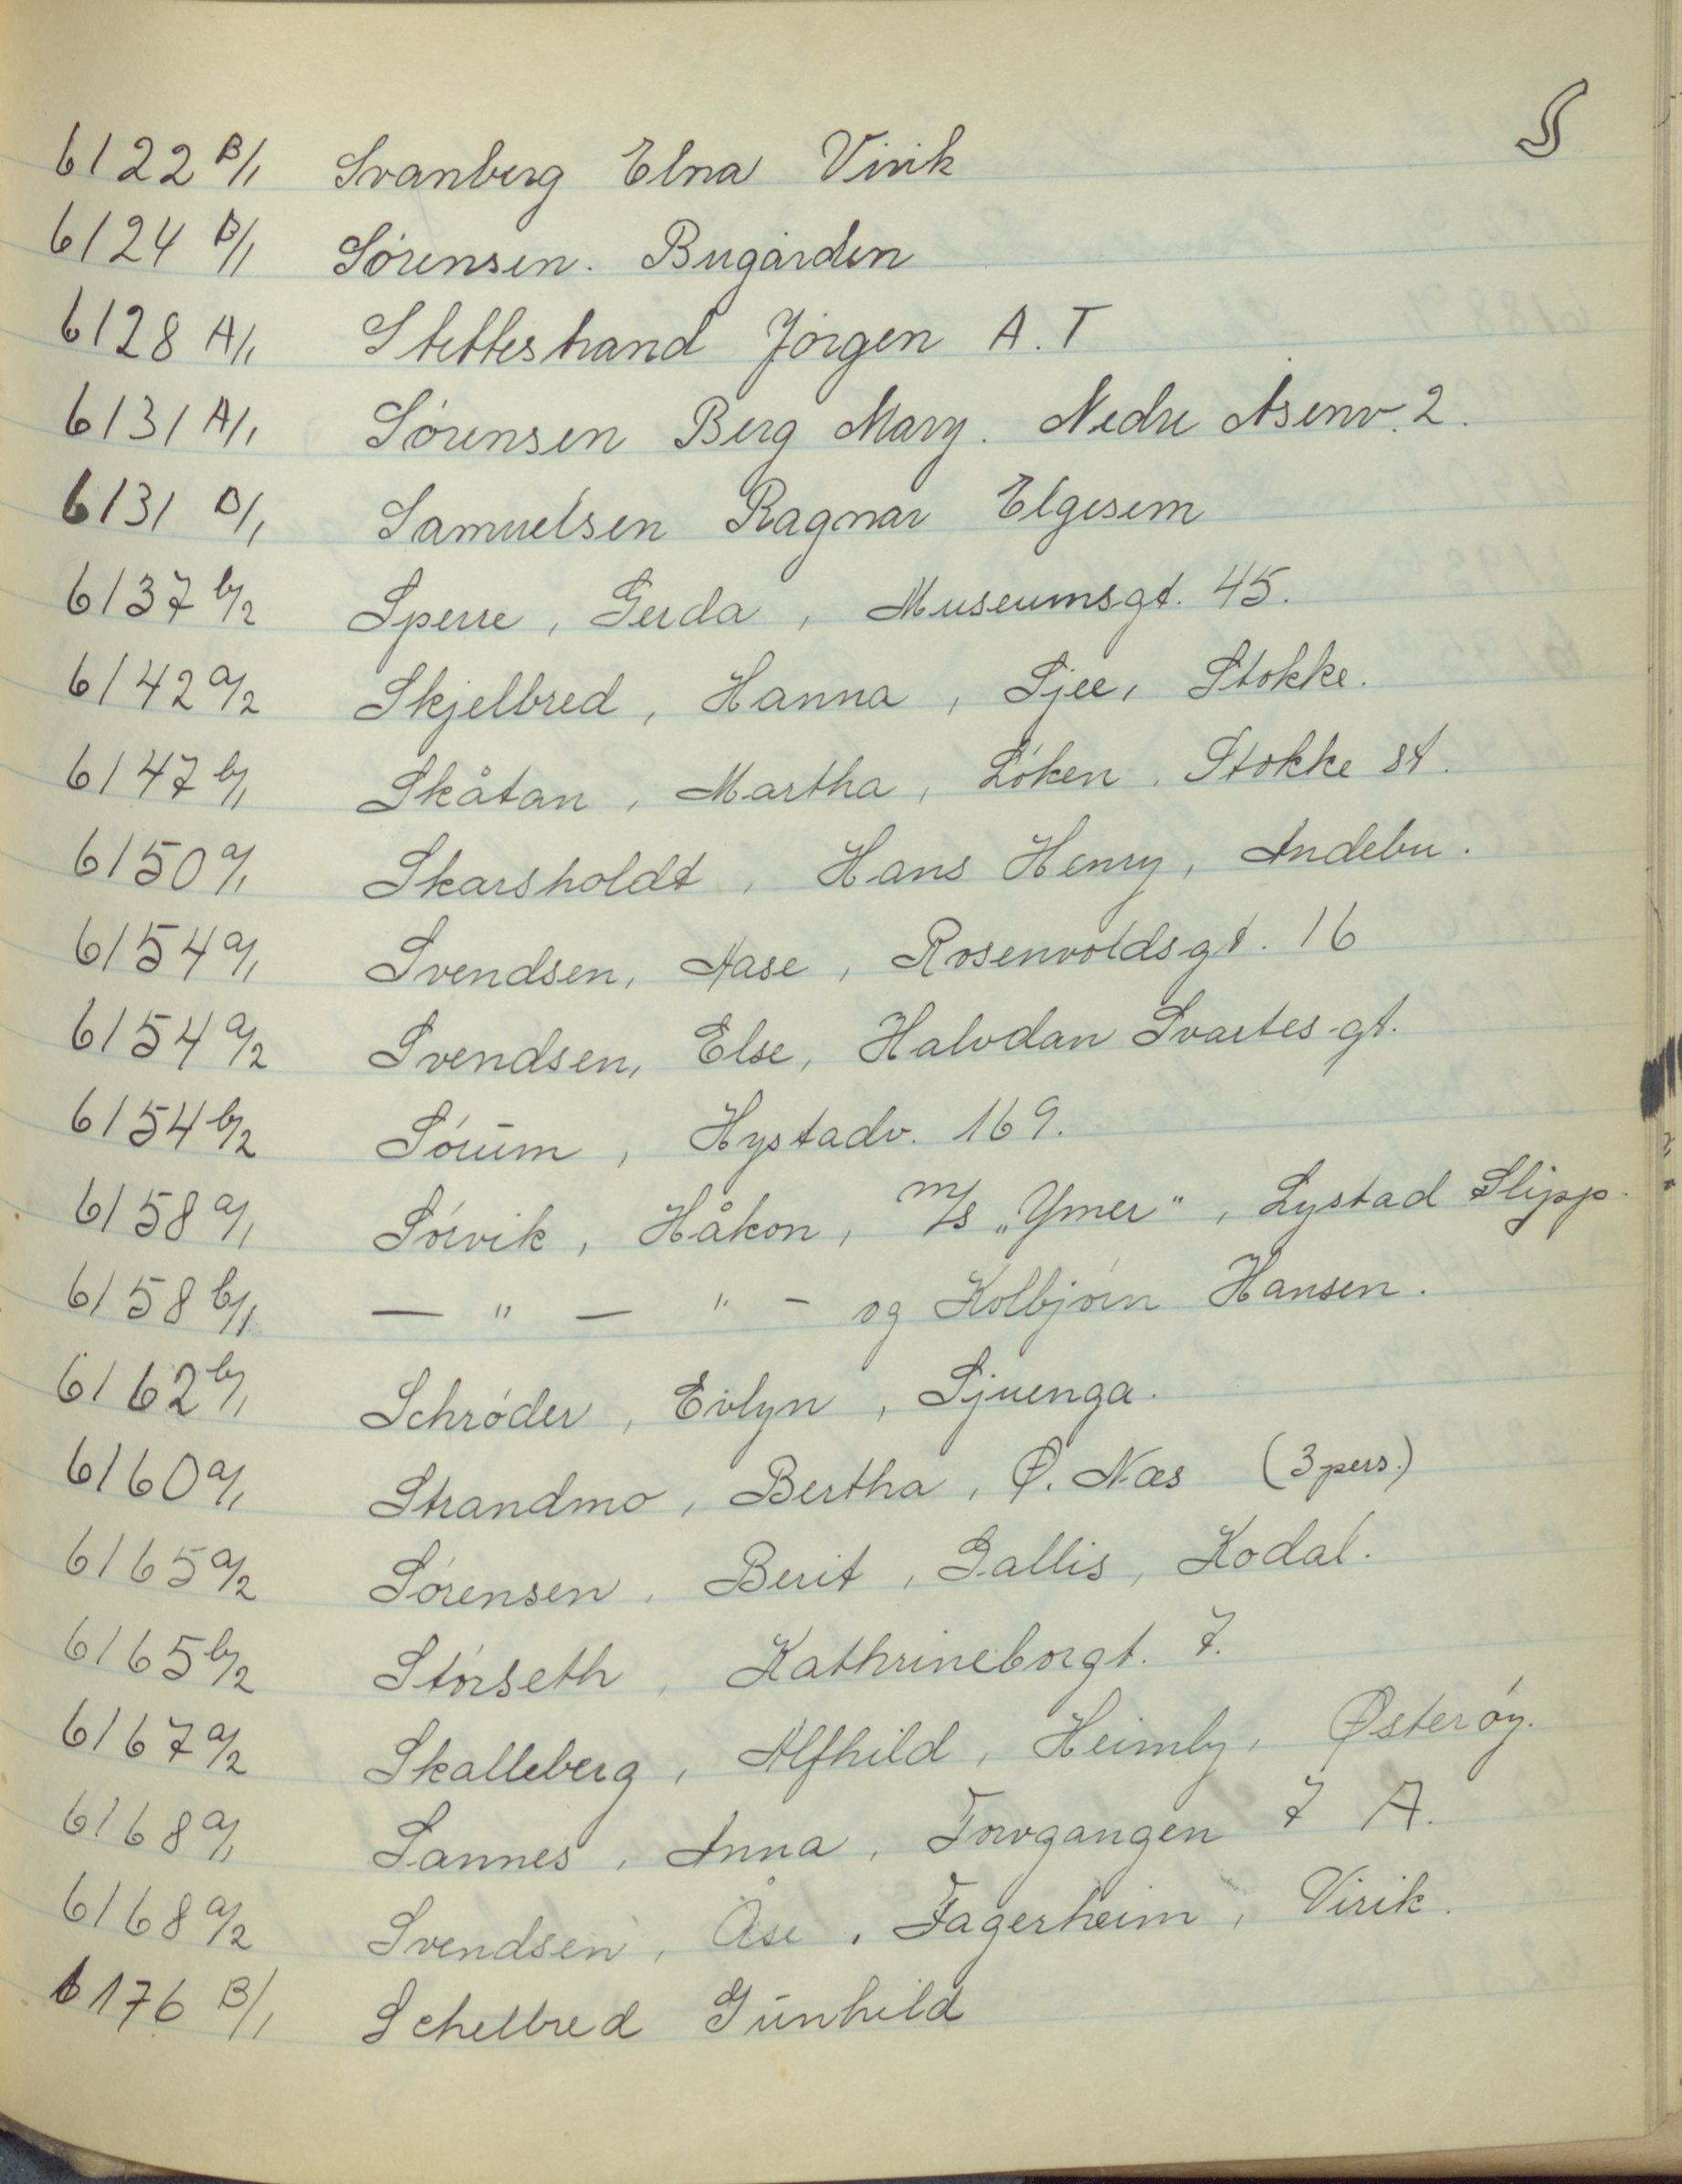 S
6122 B/1 Svanberg Elna Virik
6124 B/1 Sørensen. Bugården
6128 A/1 Stettestrand Jørgen A.T
6131 A/1 Sørensen Berg Mary. Nedre Åsenv. 2.
6131 B/1 Samuelsen Ragnar Elgesem
6137 b/2 Sperre, Gerda, Museumsgt. 45.
6142 a/2 Skjelbred, Hanna, Sjee, Stokke.
6147 b/1 Skåtan, Martha, Løken, Stokke st.
6150 a/1 Skarsholdt, Hans Henry, Andebu.
6154 a/1 Svendsen, Aase, Rosenvoldsgt. 16
6154 a/2 Svendsen, Else, Halvdan Svartes gt.
6154 b/2 Sørum, Hystadv. 169.
6158 a/1 Sørvik, Håkon, M/S „Ymer", Lystad Slipp.
6158 b/1 — " — " - og Kolbjørn Hansen.
6162 b/1 Schrøder, Evlyn, Sjuenga.
6160 a/1 Strandmo, Bertha, Ø. Næs (3 pers.)
6165 a/2 Sørensen, Berit, Gallis, Kodal.
6165 b/2 Størseth, Kathrineborgt. 7.
6167 a/2 Skalleberg, Alfhild, Heimly, Østerøy.
6168 a/1 Sannes, Anna, Torvgangen 7 A.
6168 a/2 Svendsen, Åse, Fagerheim, Virik.
6176 B/1 Schelbred Gunhild